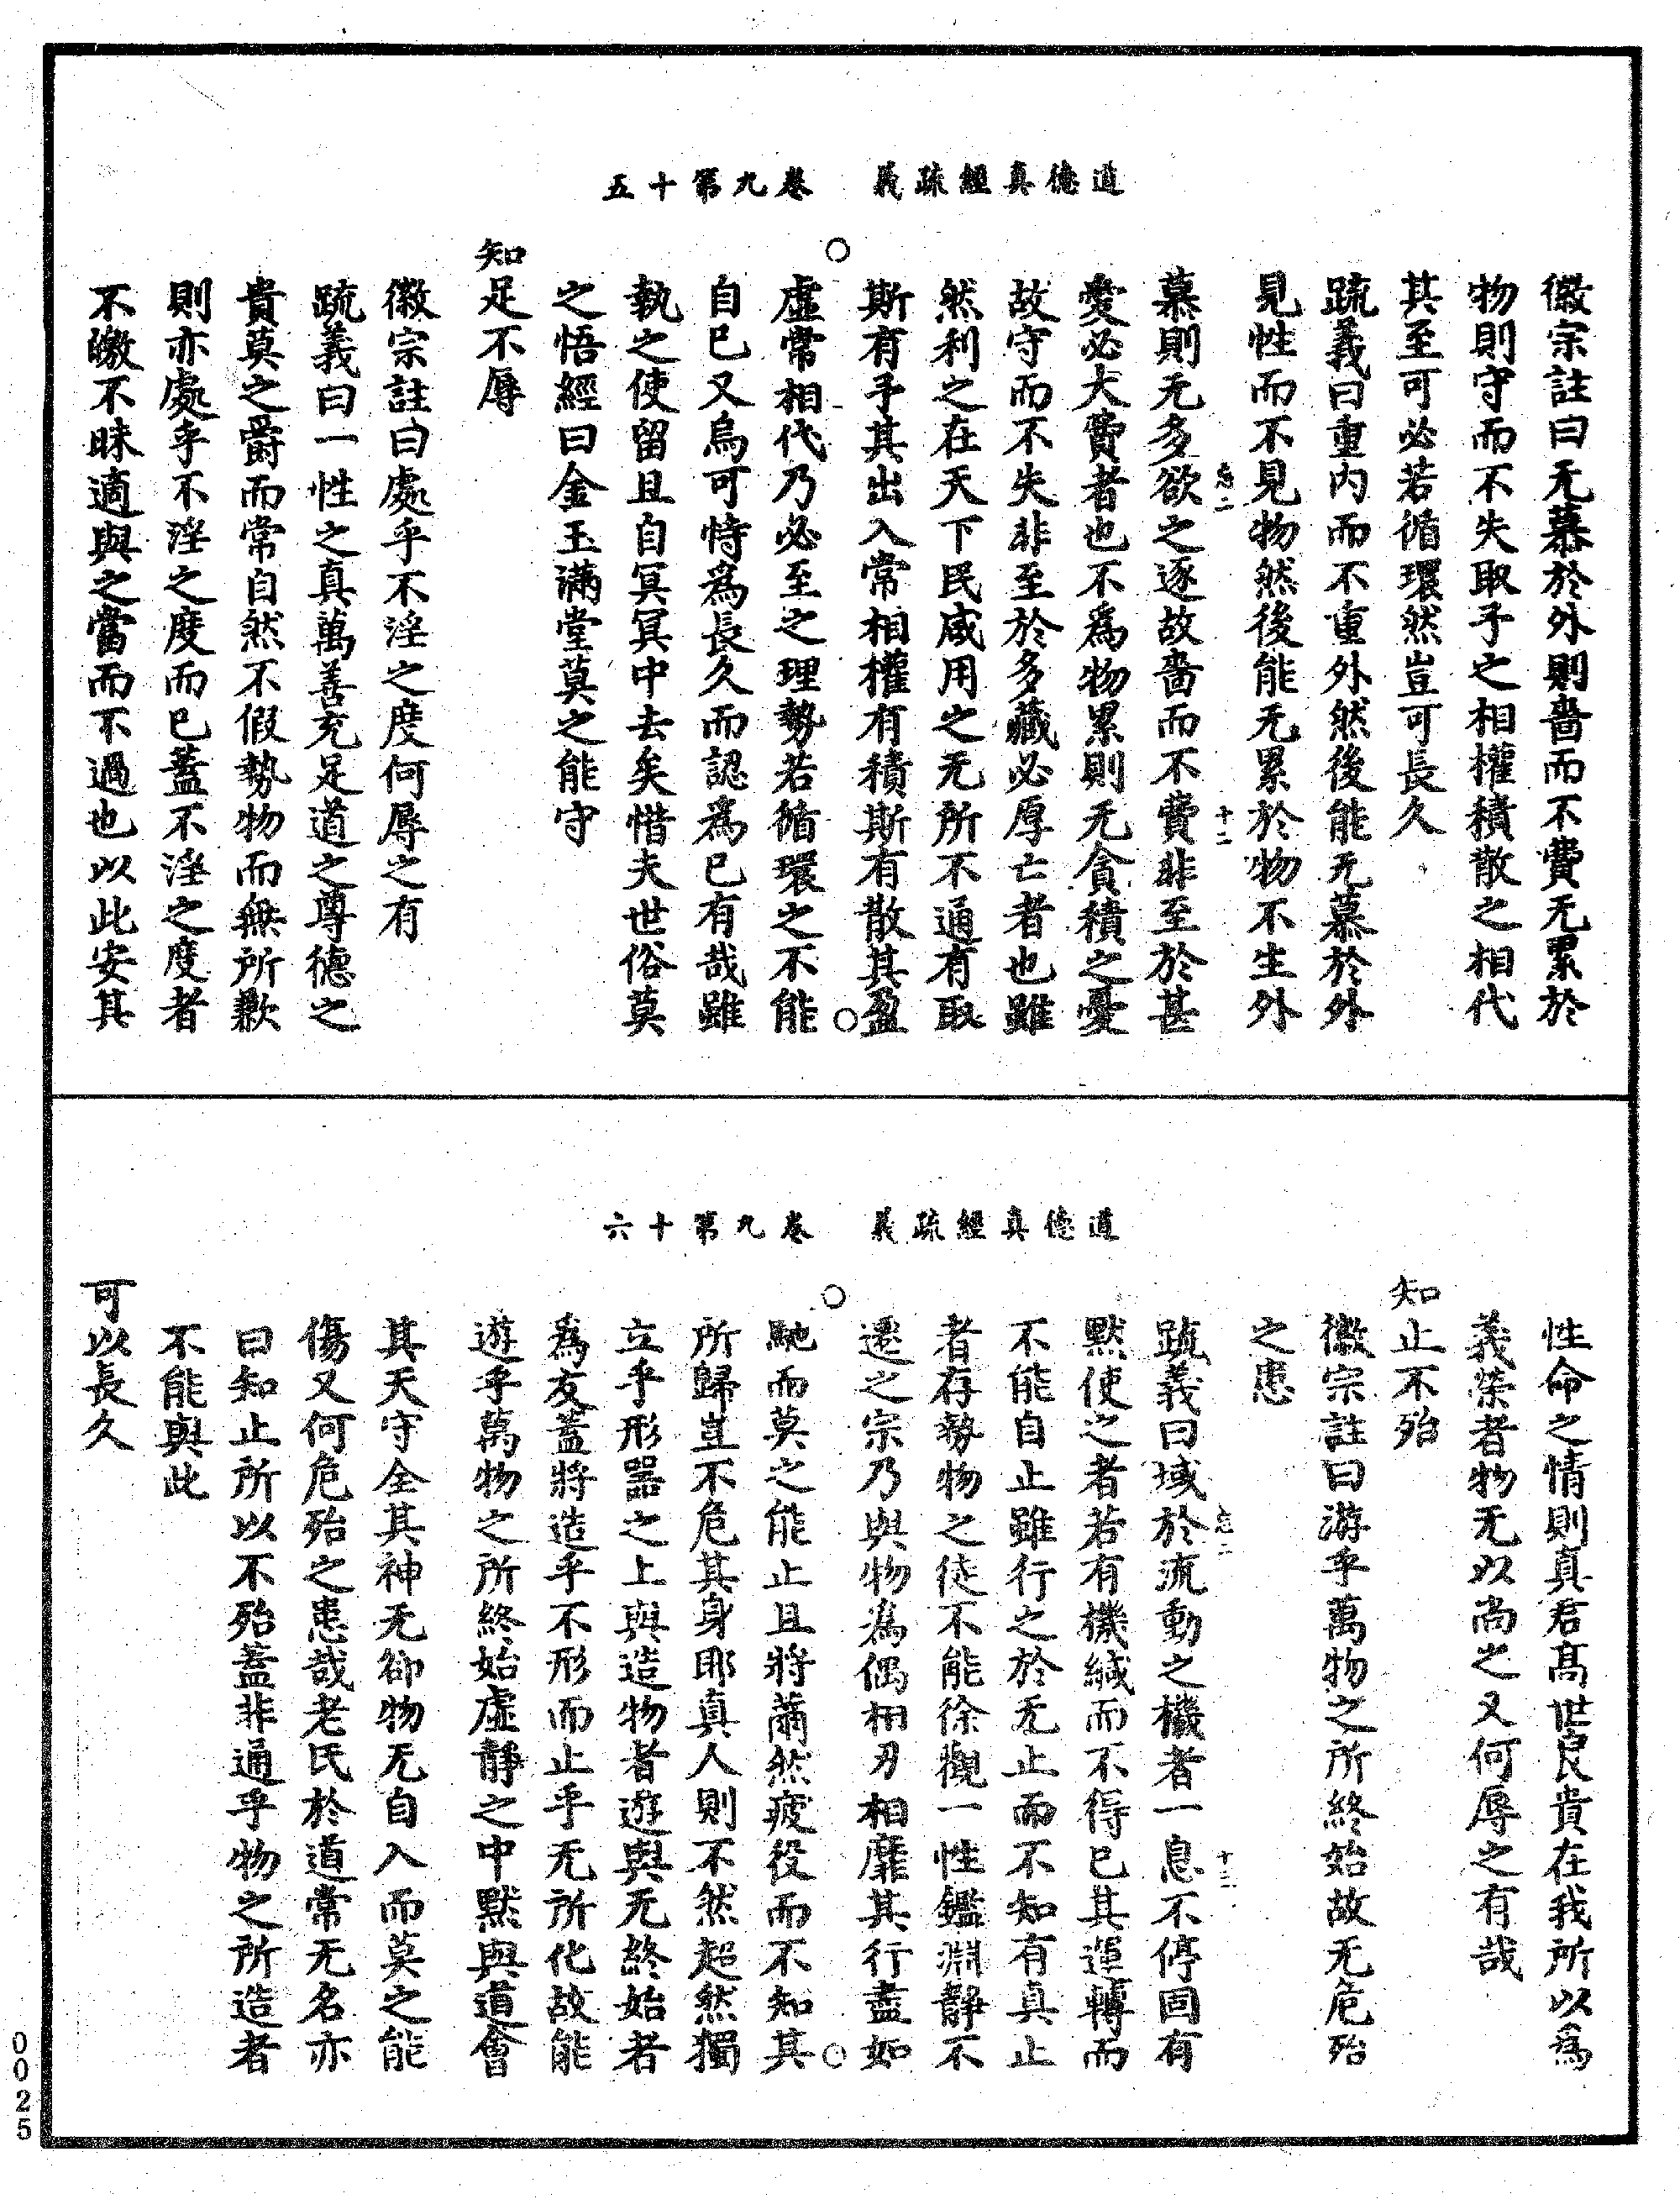 道德真經疏義　卷九第十五
徽宗註曰无慕於外則嗇而不費无累於
物則守而不失取予之相權積散之相代
其至可必若循環然豈可長久
疏義曰重內而不重外然後能无慕於外
見性而不見物然後能无累於物不生外
慕則无多欲之逐故嗇而不費非至於甚
愛必大費者也不爲物累則无貪積之憂
故守而不失非至於多藏必厚亡者也雖
然利之在天下民咸用之无所不通有取
斯有予其出入常相權有積斯有散其盈
虛常相代乃必至之理勢若循環之不能
自已又烏可恃爲長久而認爲已有哉雖
執之使留且自冥冥中去矣惜夫世俗莫
之悟經曰金玉滿堂莫之能守
知足不辱
徽宗註曰處乎不淫之度何辱之有
疏義曰一性之真萬善充足道之尊德之
貴莫之爵而常自然不假勢物而無所歉
則亦處乎不淫之度而已蓋不淫之度者
不皦不昧適與之當而不過也以此安其
道德真經疏義　卷九第十六
性命之情則真君高世良貴在我所以爲
義榮者物无以尚之又何辱之有哉
知止不殆
徽宗註曰游乎萬物之所終始故无危殆
之患
疏義曰域於流動之機者一息不停固有
默使之者若有機緘而不得已其運轉而
不能自止雖行之於无止而不知有真止
者存勢物之徒不能徐觀一性鑑淵靜不
遷之宗乃與物爲偶相刃相靡其行盡如
馳而莫之能止且將薾然疲役而不知其
所歸豈不危其身耶真人則不然超然獨
立乎形器之上與造物者遊與无終始者
爲友蓋將造乎不形而止乎无所化故能
遊乎萬物之所終始虛靜之中默與道會
其天守全其神无郤物无自入而莫之能
傷又何危殆之患哉老氏於道常无名亦
曰知止所以不殆蓋非通乎物之所造者
不能與此
可以長久
0025